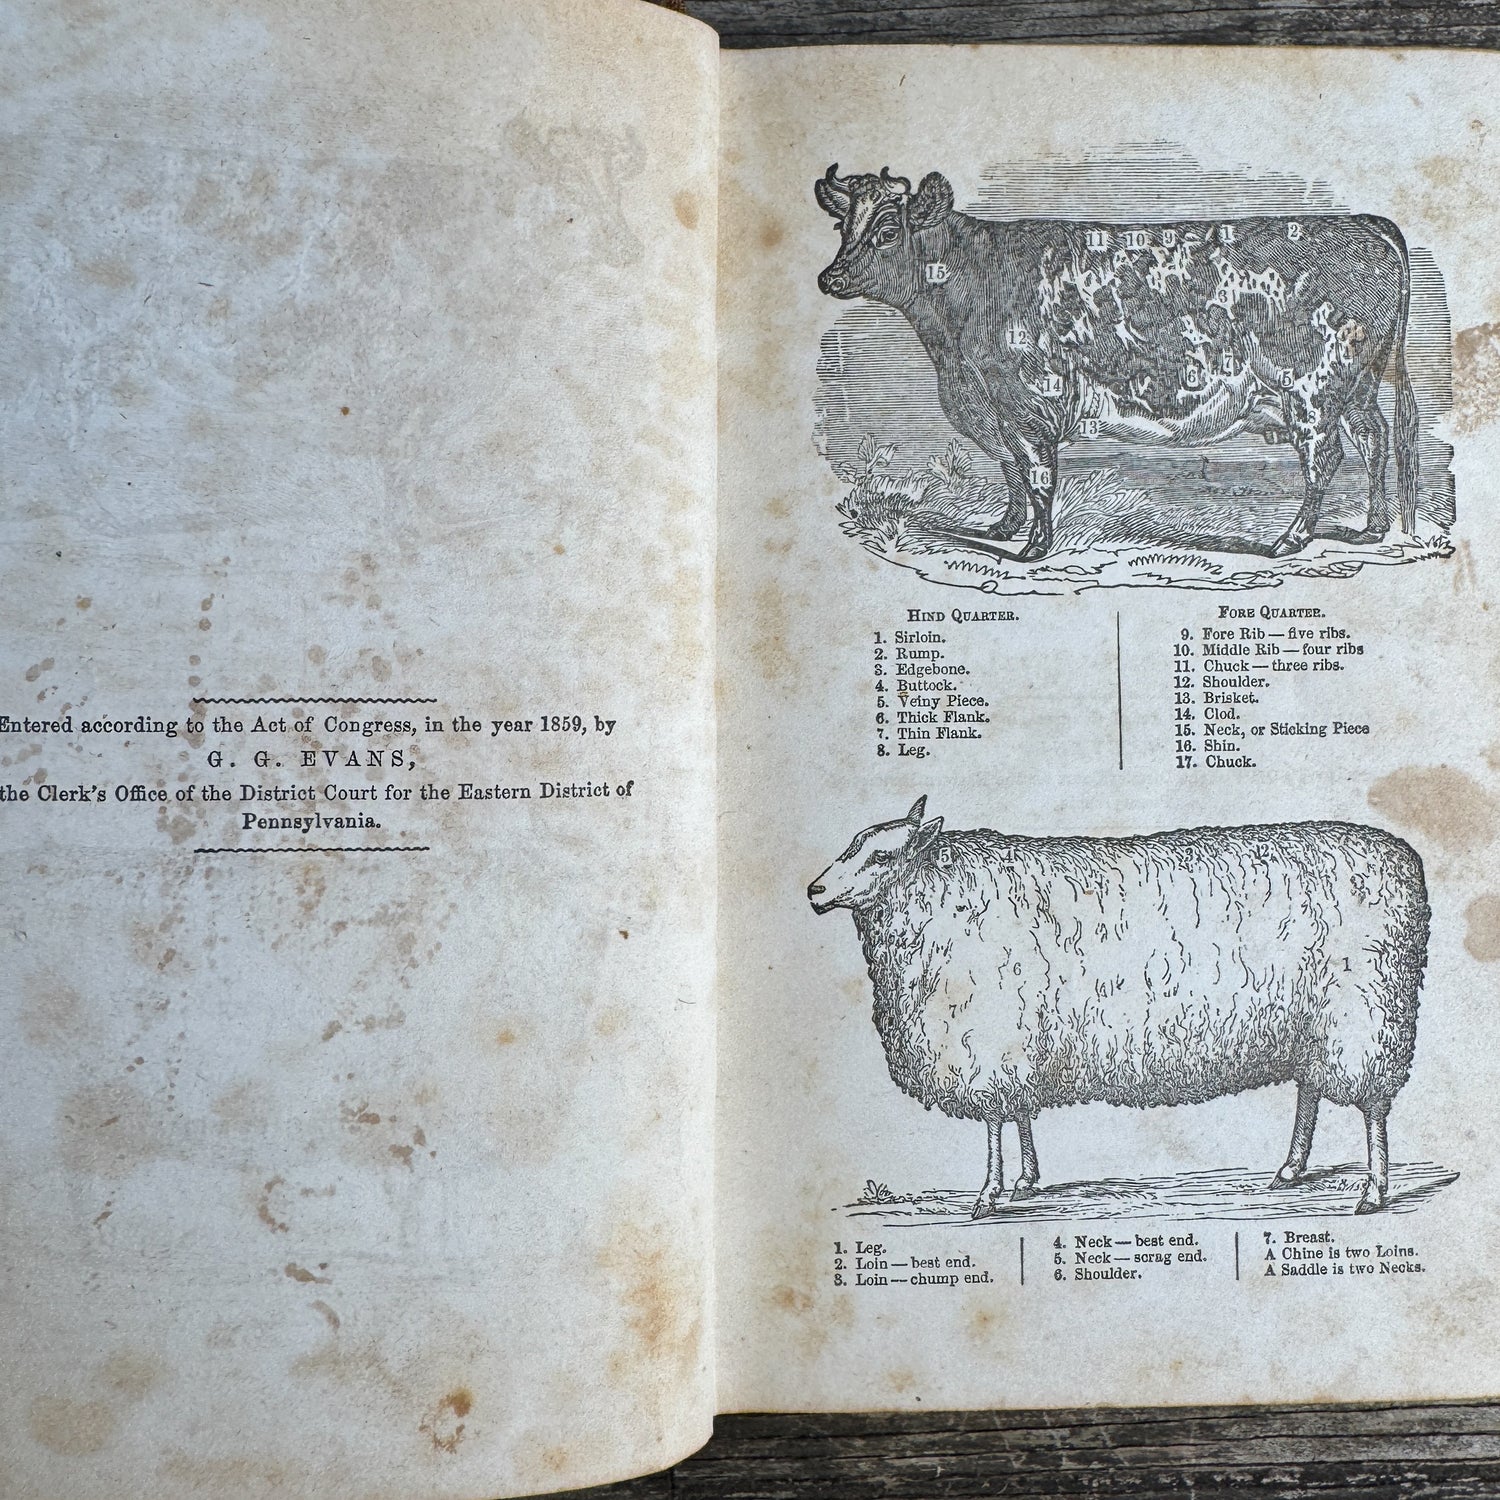 Entered according to the Act of Congress, in the year 1859, by
G. G. EVANS,
the Clerk's Office of the District Court for the Eastern District of
Pennsylvania.
11 10 9 1 2
15
3
12
7
14 6 5
8
13
16
HIND QUARTER.
1. Sirloin.
2. Rump.
3. Edgebone.
4. Buttock.
5. Veiny Piece.
6. Thick Flank.
7. Thin Flank.
8. Leg.
FORE QUARTER.
9. Fore Rib — five ribs.
10. Middle Rib — four ribs
11. Chuck — three ribs.
12. Shoulder.
13. Brisket.
14. Clod.
15. Neck, or Sticking Piece
16. Shin.
17. Chuck.
5 4 3 2
6 1
7
1. Leg.
2. Loin — best end.
3. Loin — chump end.
4. Neck — best end.
5. Neck — scrag end.
6. Shoulder.
7. Breast.
A Chine is two Loins.
A Saddle is two Necks.